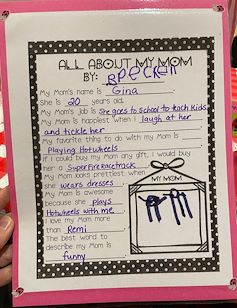 ALL ABOUT MY MOM
BY:
My Mom's name is Gina.
She is 20 years old.
My Mom's job is She goes to school to teach kids.
My Mom is happiest when I laugh at her
and tickle her.
My favorite thing to do with my Mom is
Playing Hotwheels.
If I could buy my Mom any gift, I would buy
her a Superfire Racetrack.
My Mom looks prettiest when
she wears dresses.
My Mom is awesome
because she plays
Hotwheels with me.
I love my Mom more
than Remi.
The best word to
describe my Mom is
funny.
MY MOM